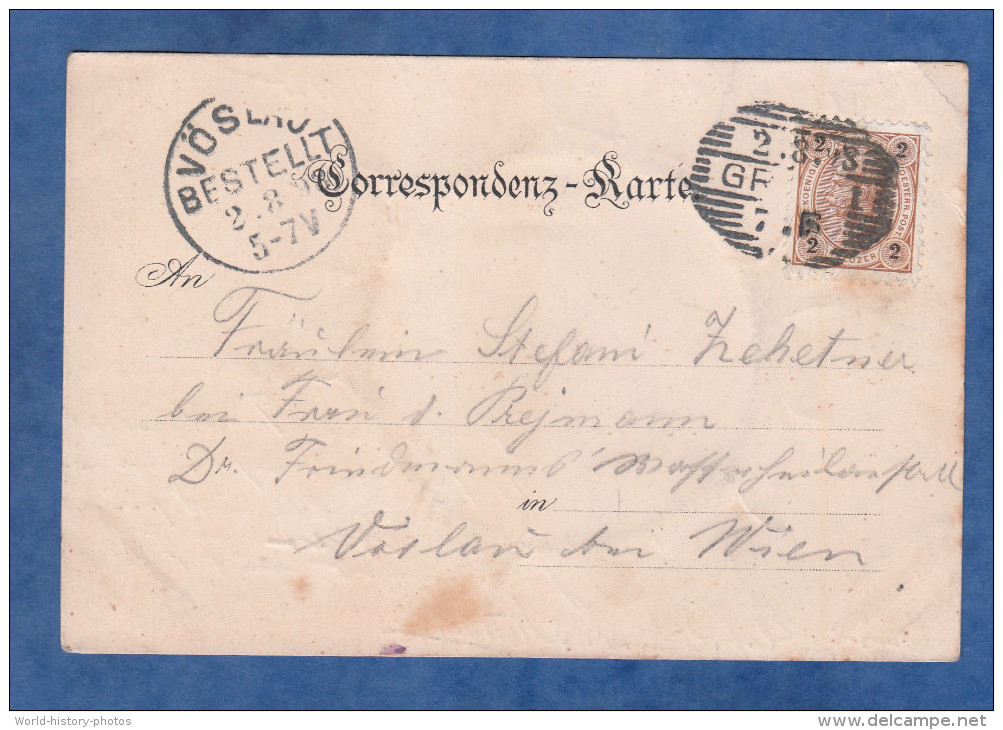 VÖSLAU
BESTELLT
2.8.9
5-7V
Correspondenz-Karte
2.8.
GR
2 2
KOENIGL OESTERR. POST
2 2
An
Fräulein Stefani Zehetner
bei Frau v. Prejmann
Dr. Friedmanns' Wasserheilanstalt
in
Vöslau bei Wien
World-history-photos
delcampe.net